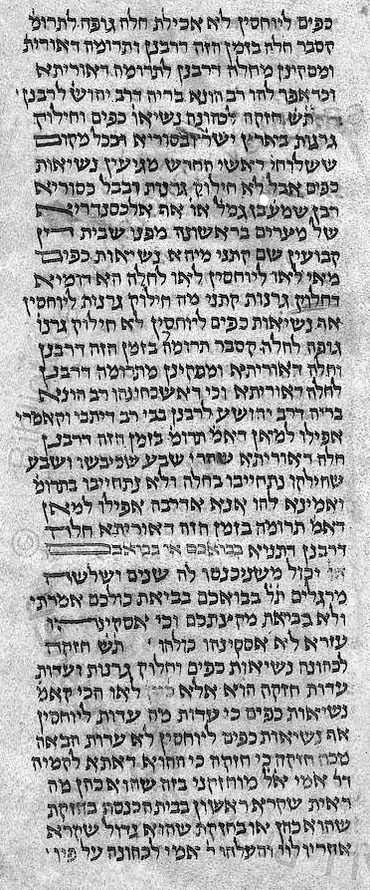 כפים ליוחסין לא אכילת חלה גופה לתרומ'
קסבר חלה בזמן הזה דרבנן ותרומה דאורית'
ומסקינן מחלה דרבנן לתרומה דאוריתא
וכדאפר להו רב הונא בריה דרב יהושע לרבנן
תש חזקה לכהונה נשיאו כפים וחילוק
גרנות בארץ ישר ובסוריא ובכל מקום
ששלוחי ראשי חחדש מגיעין נשיאות
כפים אבל לא חילוק גרנות ובבל כסוריא
רבן שמעון בן גמל או אף אלכסנדריא
של מצרים בראשונה מפני שבית דין
קבועין שם קתני מיהא נשיאות כפים
מאי לאו ליוחסין לאו לחלה הא דומיא
דחלוק גרנות קתני מה חילוק גרנות ליוחסין
אף נשיאות כפים ליוחסין לא חילוק גרנו
גופה לחלה קסבר תרומה בזמן הזה דרבנן
וחלה דאוריתא ומסקינן מתרומה דרבנן
לחלה דאוריתא וכי דאשכחונהו רב הונא
בריה דרב יהושע לרבנן בבי רב דיתבי וקאמרי
אפילו למאן דאמ תרומ' בזמן הזה דרבנן
חלה דאוריתא שהרי שבע שכיבשו ושבע
שחילקו נתחייבו בחלה ולא נתחייבו בתרומ'
ואמינא להו אנא אדרבה אפילו למאן
דאמ תרומה בזמן הזה דאוריתא חלה
דרבנן דתניא בבואכם או בבואכ
יכול משניכנסו לה שנים ושלשה
מרגלים תל בבואכם בביאת כולכם אמרתי
ולא בביאת מקצתכם וכי אסקינהו
עזרא לא אסקינהו כולהו תש חזקה
לכהונה נשיאות כפים וחלוק גרנות ועדות
עדות חזקה הוא אלא לאו הכי קאמ
נשיאות כפים כי עדות מה עדות ליוחסין
אף נשיאות כפים ליוחסין לא עדות הבאה
מכח חזקה כי חזקה כי ההוא דאתא לקמיה
דר אמי אל מוחזקני בזה שהוא כהן מה
ראית שקרא ראשון בבית הכנסת בחזקת
שהוא כהן או בחזקת שהוא גדול שקרא
אחריו לוי והעלהו ר אמי לכהונה על פיו